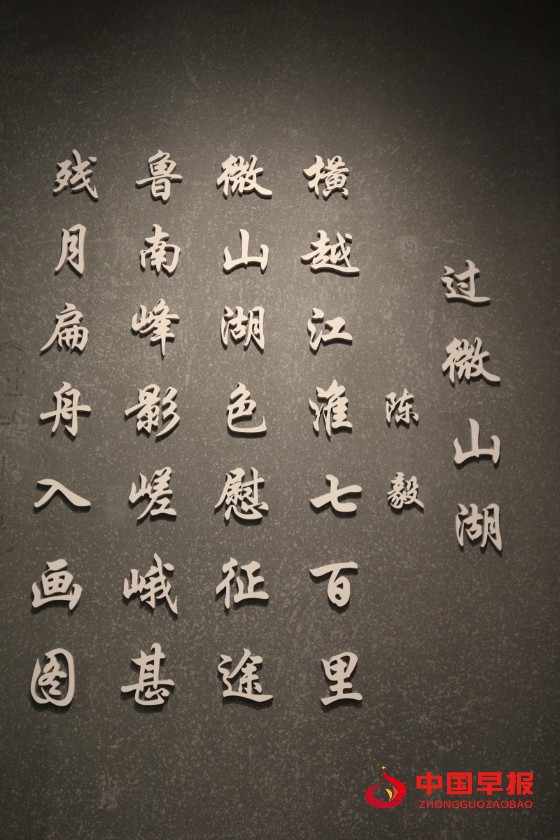 过微山湖
陈毅
横越江淮七百里
微山湖色慰征途
鲁南峰影嵯峨甚
残月扁舟入画图
中国早报
ZHONGGUOZAOBAO